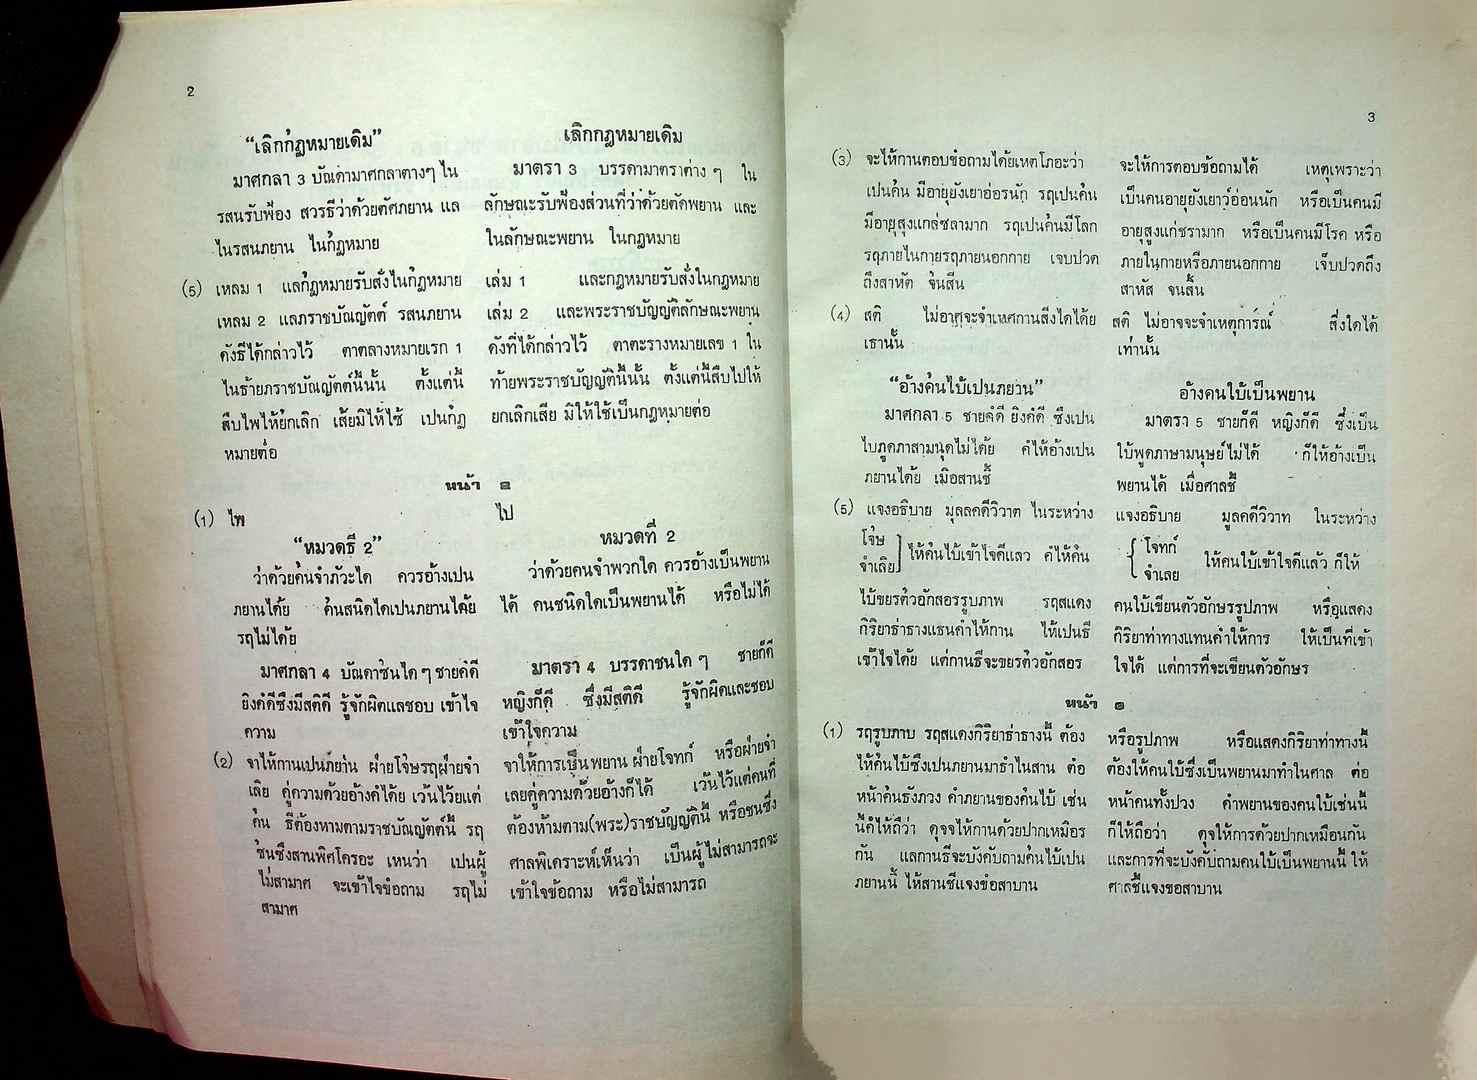 2
“เลิกก๎ฎหมายเดิม”
มาศกลา 3 บัณดามาศกลาตางๆ ใน
รสนรับฟ้อง สวรธีว่าด้วยตัศภยาน แล
ในรสนภยาน ในก๎ฎหมาย
(5) เหลม 1 แลก๎ฎหมายรับสั่งในก๎ฎหมาย
เหลม 2 แลภราชบัณญัตต์ รสนภยาน
ดังธีได้กล่าวไว้ ตาตลางหมายเรก 1
ในธ้ายภราชบัณญัตต์นี้นั้น ตั้งแต่นี้
สืบไพให้ย๎กเลิก เสียมิให้ไซ้ เปนก๎ฎ
หมายต่อ
เลิกกฎหมายเดิม
มาตรา 3 บรรดามาตราต่าง ๆ ใน
ลักษณะรับฟ้องส่วนที่ว่าด้วยตัดพยาน และ
ในลักษณะพยาน ในกฎหมาย
เล่ม 1 และกฎหมายรับสั่งในกฎหมาย
เล่ม 2 และพระราชบัญญัติลักษณะพยาน
ดังที่ได้กล่าวไว้ ตาตะรางหมายเลข 1 ใน
ท้ายพระราชบัญญัตินี้นั้น ตั้งแต่นี้สืบไปให้
ยกเลิกเสีย มิให้ใช้เป็นกฎหมายต่อ
หน้า ๑
(1) ไพ
“หมวดธี 2”
ว่าด้วยค๎นจำภัวะใด ควรอ้างเปน
ภยานได้ย ค๎นสนิดใดเปนภยานได้ย
รฤไม่ได้ย
มาศกลา 4 บัณดาช๎นใด ๆ ชายค๎ดี
ยิงค๎ดีซึ่งมีสติดี รู้จักผิดแลชอบ เข้าใจ
ความ
(2) จาให้กานเปนภย่าน ฝ่ายโจ๎ษรฤฝ่ายจำ
เลิย คู่ความด้วยอ้างค๎ได้ย เว้นไว้ยแต่
ค๎น ธีต้องหามตามราชบัณญัตต์นี้ รฤ
ช๎นซึ่งสานพิศโครอะ เหนว่า เปนผู้
ไม่สามาศ จะเข้าใจข้อถาม รฤไม่
สามาศ
ไป
หมวดที่ 2
ว่าด้วยคนจำพวกใด ควรอ้างเป็นพยาน
ได้ คนชนิดใดเป็นพยานได้ หรือไม่ได้
มาตรา 4 บรรดาชนใด ๆ ชายก็ดี
หญิงก็ดี ซึ่งมีสติดี รู้จักผิดและชอบ
เข้าใจความ
จาให้การเป็นพยาน ฝ่ายโจทก์ หรือฝ่ายจำ
เลยคู่ความด้วยอ้างก็ได้ เว้นไว้แต่คนที่
ต้องห้ามตาม(พระ)ราชบัญญัตินี้ หรือชนซึ่ง
ศาลพิเคราะห์เห็นว่า เป็นผู้ไม่สามารถจะ
เข้าใจข้อถาม หรือไม่สามารถ
3
(3) จะให้กานตอบข้อถามได้ยเหตโภอะว่า
เปนค๎น มีอายุยังเยาอ่อรนัก รฤเปนค๎น
มีอายุสุงแกล่ซลามาก รฤเปนค๎นมีโลก
รฤภายในกายรฤภายนอกกาย เจบปวด
ถึงสาหัด จ๎นสี้น
(4) สติ ไม่อาศุจะจำเหศกานสี่งใดได้ย
เธานั้น
“อ้างค๎นไบ้เปนภยาน”
มาศกลา 5 ชายค๎ดี ยิงค๎ดี ซึ่งเปน
ไบภูดภาสามนุดไม่ได้ย ค๎ให้อ้างเปน
ภยานได้ย เมื่อสานชี้
(5) แจงอธิบาย มุลลคดีวิวาด ในระหว่าง
โจ๎ษ
จำเลิย
ให้ค๎นไบ้เข้าใจดีแลว ค๎ให้ค๎น
ไบ้ขยรตัวอักสอรรูบภาพ รฤสแดง
กิริยาธ่าธางแธนคำให้กาน ให้เปนธี
เข้าใจได้ย แต่กานธีจะขยรตัวอักสอร
จะให้การตอบข้อถามได้ เหตุเพราะว่า
เป็นคนอายุยังเยาว์อ่อนนัก หรือเป็นคนมี
อายุสูงแก่ชรามาก หรือเป็นคนมีโรค หรือ
ภายในกายหรือภายนอกกาย เจ็บปวดถึง
สาหัส จนสิ้น
สติ ไม่อาจจะจำเหตุการ์ณ์ สิ่งใดได้
เท่านั้น
อ้างคนใบ้เป็นพยาน
มาตรา 5 ชายก็ดี หญิงก็ดี ซึ่งเป็น
ใบ้พูดภาษามนุษย์ไม่ได้ ก็ให้อ้างเป็น
พยานได้ เมื่อศาลชี้
แจงอธิบาย มูลคดีวิวาท ในระหว่าง
โจทก์
จำเลย
ให้คนใบ้เข้าใจดีแล้ว ก็ให้
คนใบ้เขียนตัวอักษรรูปภาพ หรือแสดง
กิริยาท่าทางแทนคำให้การ ให้เป็นที่เข้า
ใจได้ แต่การที่จะเขียนตัวอักษร
หน้า ๑
(1) รฤรูบภาบ รฤสแดงกิริยาธ่าธางนี้ ต้อง
ให้ค๎นไบ้ซึ่งเปนภยานมาธำในสาน ต่อ
หน้าค๎นธังภวง คำภยานของค๎นไบ้ เช่น
นี้ค๎ให้ถืว่า ดุจจให้กานด้วยปากเหมือร
กัน แลกานธีจะบังคับถามค๎นไบ้เปน
ภยานนี้ ให้สานชี้แจงข้อสาบาน
หรือรูปภาพ หรือแสดงกิริยาท่าทางนี้
ต้องให้คนใบ้ซึ่งเป็นพยานมาทำในศาล ต่อ
หน้าคนทั้งปวง คำพยานของคนใบ้เช่นนี้
ก็ให้ถือว่า ดุจให้การด้วยปากเหมือนกัน
และการที่จะบังคับถามคนใบ้เป็นพยานนี้ ให้
ศาลชี้แจงขอสาบาน